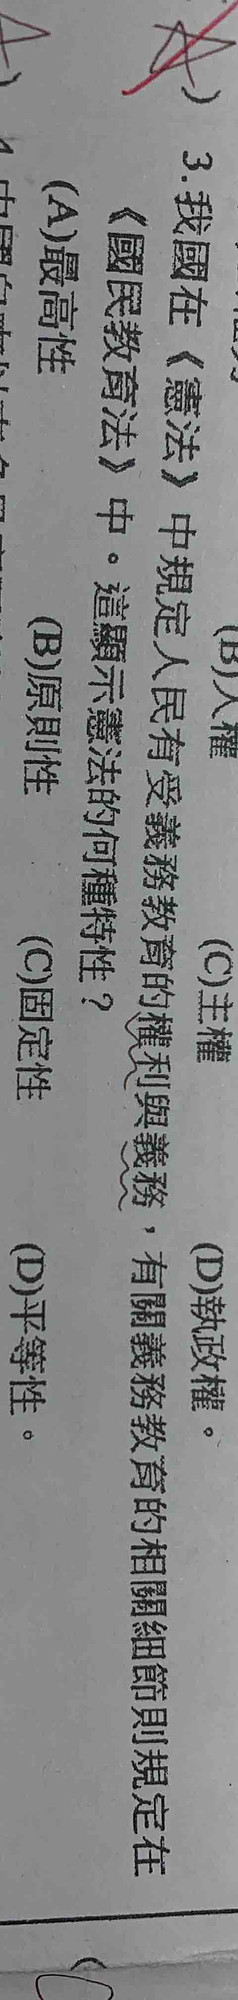 (B)人權 (C)主權 (D)執政權。
3.我國在《憲法》中規定人民有受義務教育的權利與義務，有關義務教育的相關細節則規定在
《國民教育法》中。這顯示憲法的何種特性？
(A)最高性 (B)原則性 (C)固定性 (D)平等性。